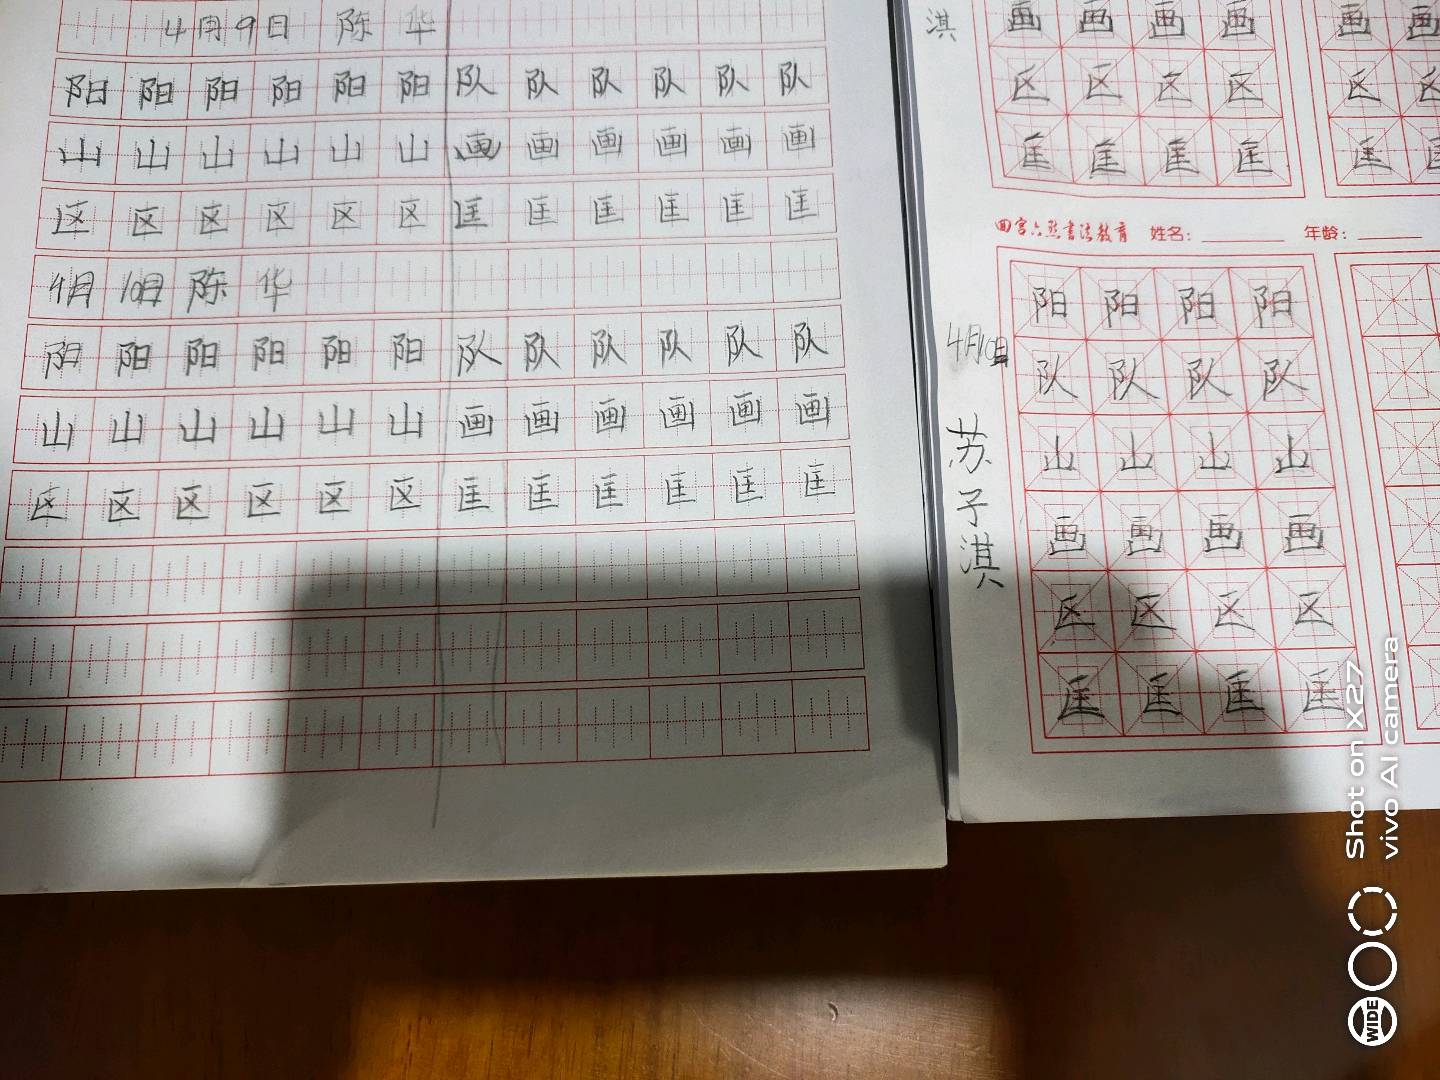 4月9日 陈 华
阳 阳 阳 阳 阳 阳 队 队 队 队 队 队
山 山 山 山 山 山 画 画 画 画 画 画
区 区 区 区 区 区 匡 匡 匡 匡 匡 匡
4月 10日 陈 华
阳 阳 阳 阳 阳 阳 队 队 队 队 队 队
山 山 山 山 山 山 画 画 画 画 画 画
区 区 区 区 区 区 匡 匡 匡 匡 匡 匡
淇
画 画 画 画
区 区 区 区
匡 匡 匡 匡
画 画
区 区
匡 匡
田宫六点书法教育 姓名: 年龄:
4月10日
苏子淇
阳 阳 阳 阳
队 队 队 队
山 山 山 山
画 画 画 画
区 区 区 区
匡 匡 匡 匡
Shot on X27
vivo AI camera
WIDE